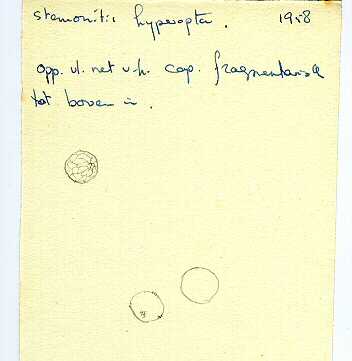 stemonitis hyperopta. 1958
opp. vl. net v.h. cap. fragmentarisch
tot boven in.